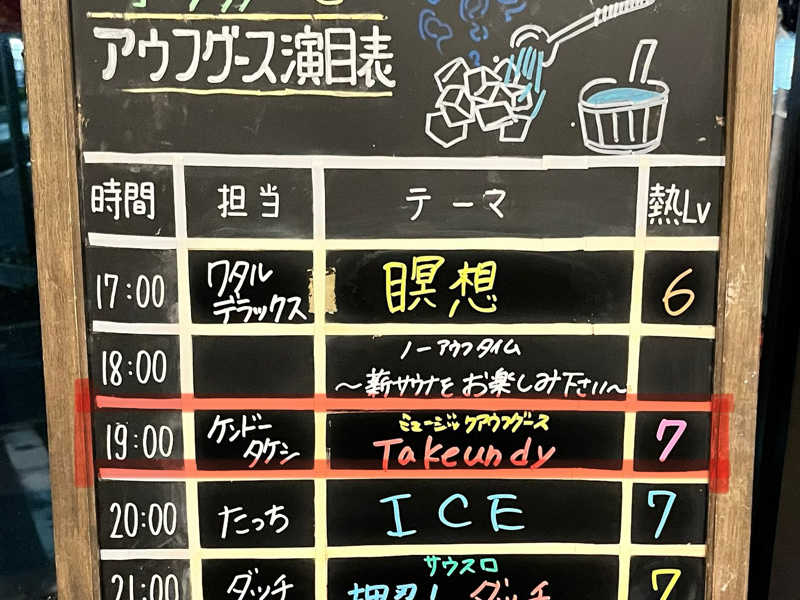 アウフグース演目表
時間 担当 テーマ 熱Lv
17:00 ワタルデラックス 瞑想 6
18:00 ノーアウフタイム
～薪サウナをお楽しみ下さい～
19:00 ケンドータケシ ミュージックアウフグース
Takeundy 7
20:00 たっち ICE 7
21:00 ダッチ サウスロ
ダッチ 7